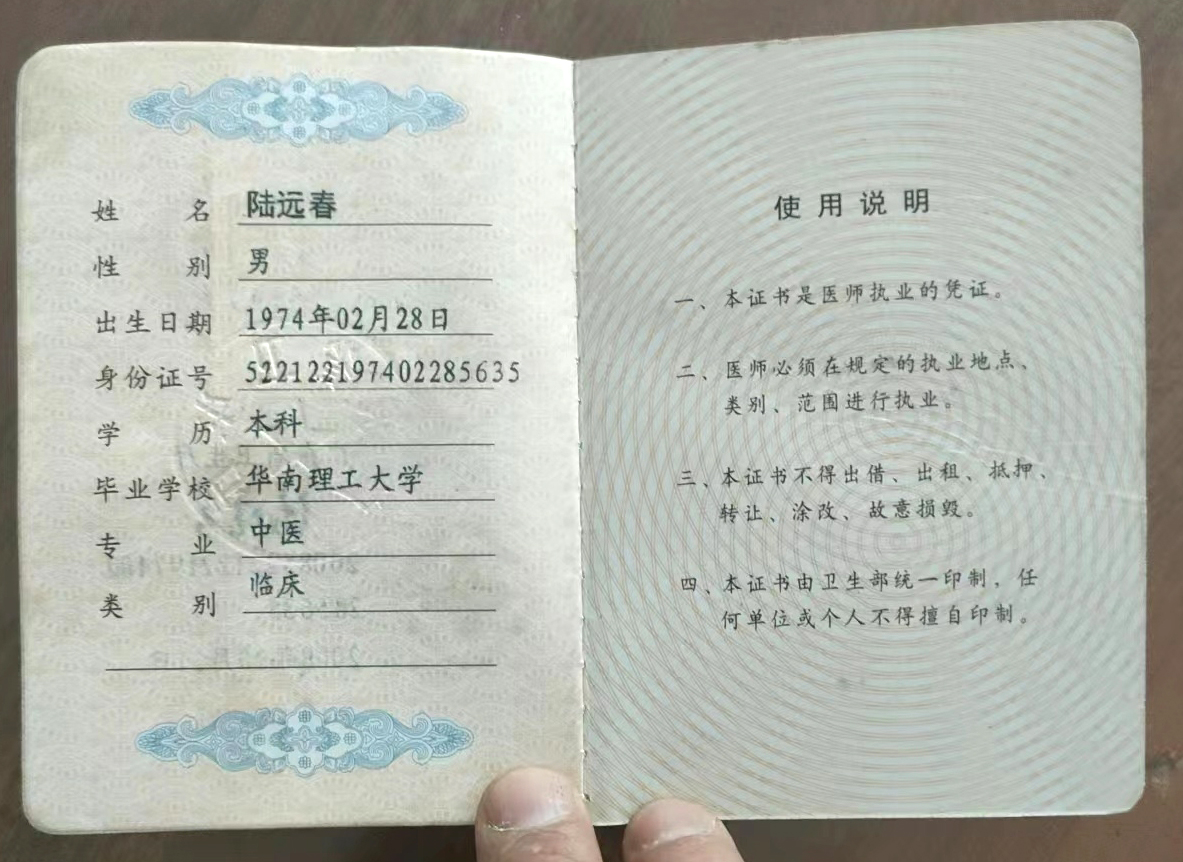 姓名 陆远春
性别 男
出生日期 1974年02月28日
身份证号 522122197402285635
学历 本科
毕业学校 华南理工大学
专业 中医
类别 临床
使用说明
一、本证书是医师执业的凭证。
二、医师必须在规定的执业地点、
类别、范围进行执业。
三、本证书不得出借、出租、抵押、
转让、涂改、故意损毁。
四、本证书由卫生部统一印制，任
何单位或个人不得擅自印制。